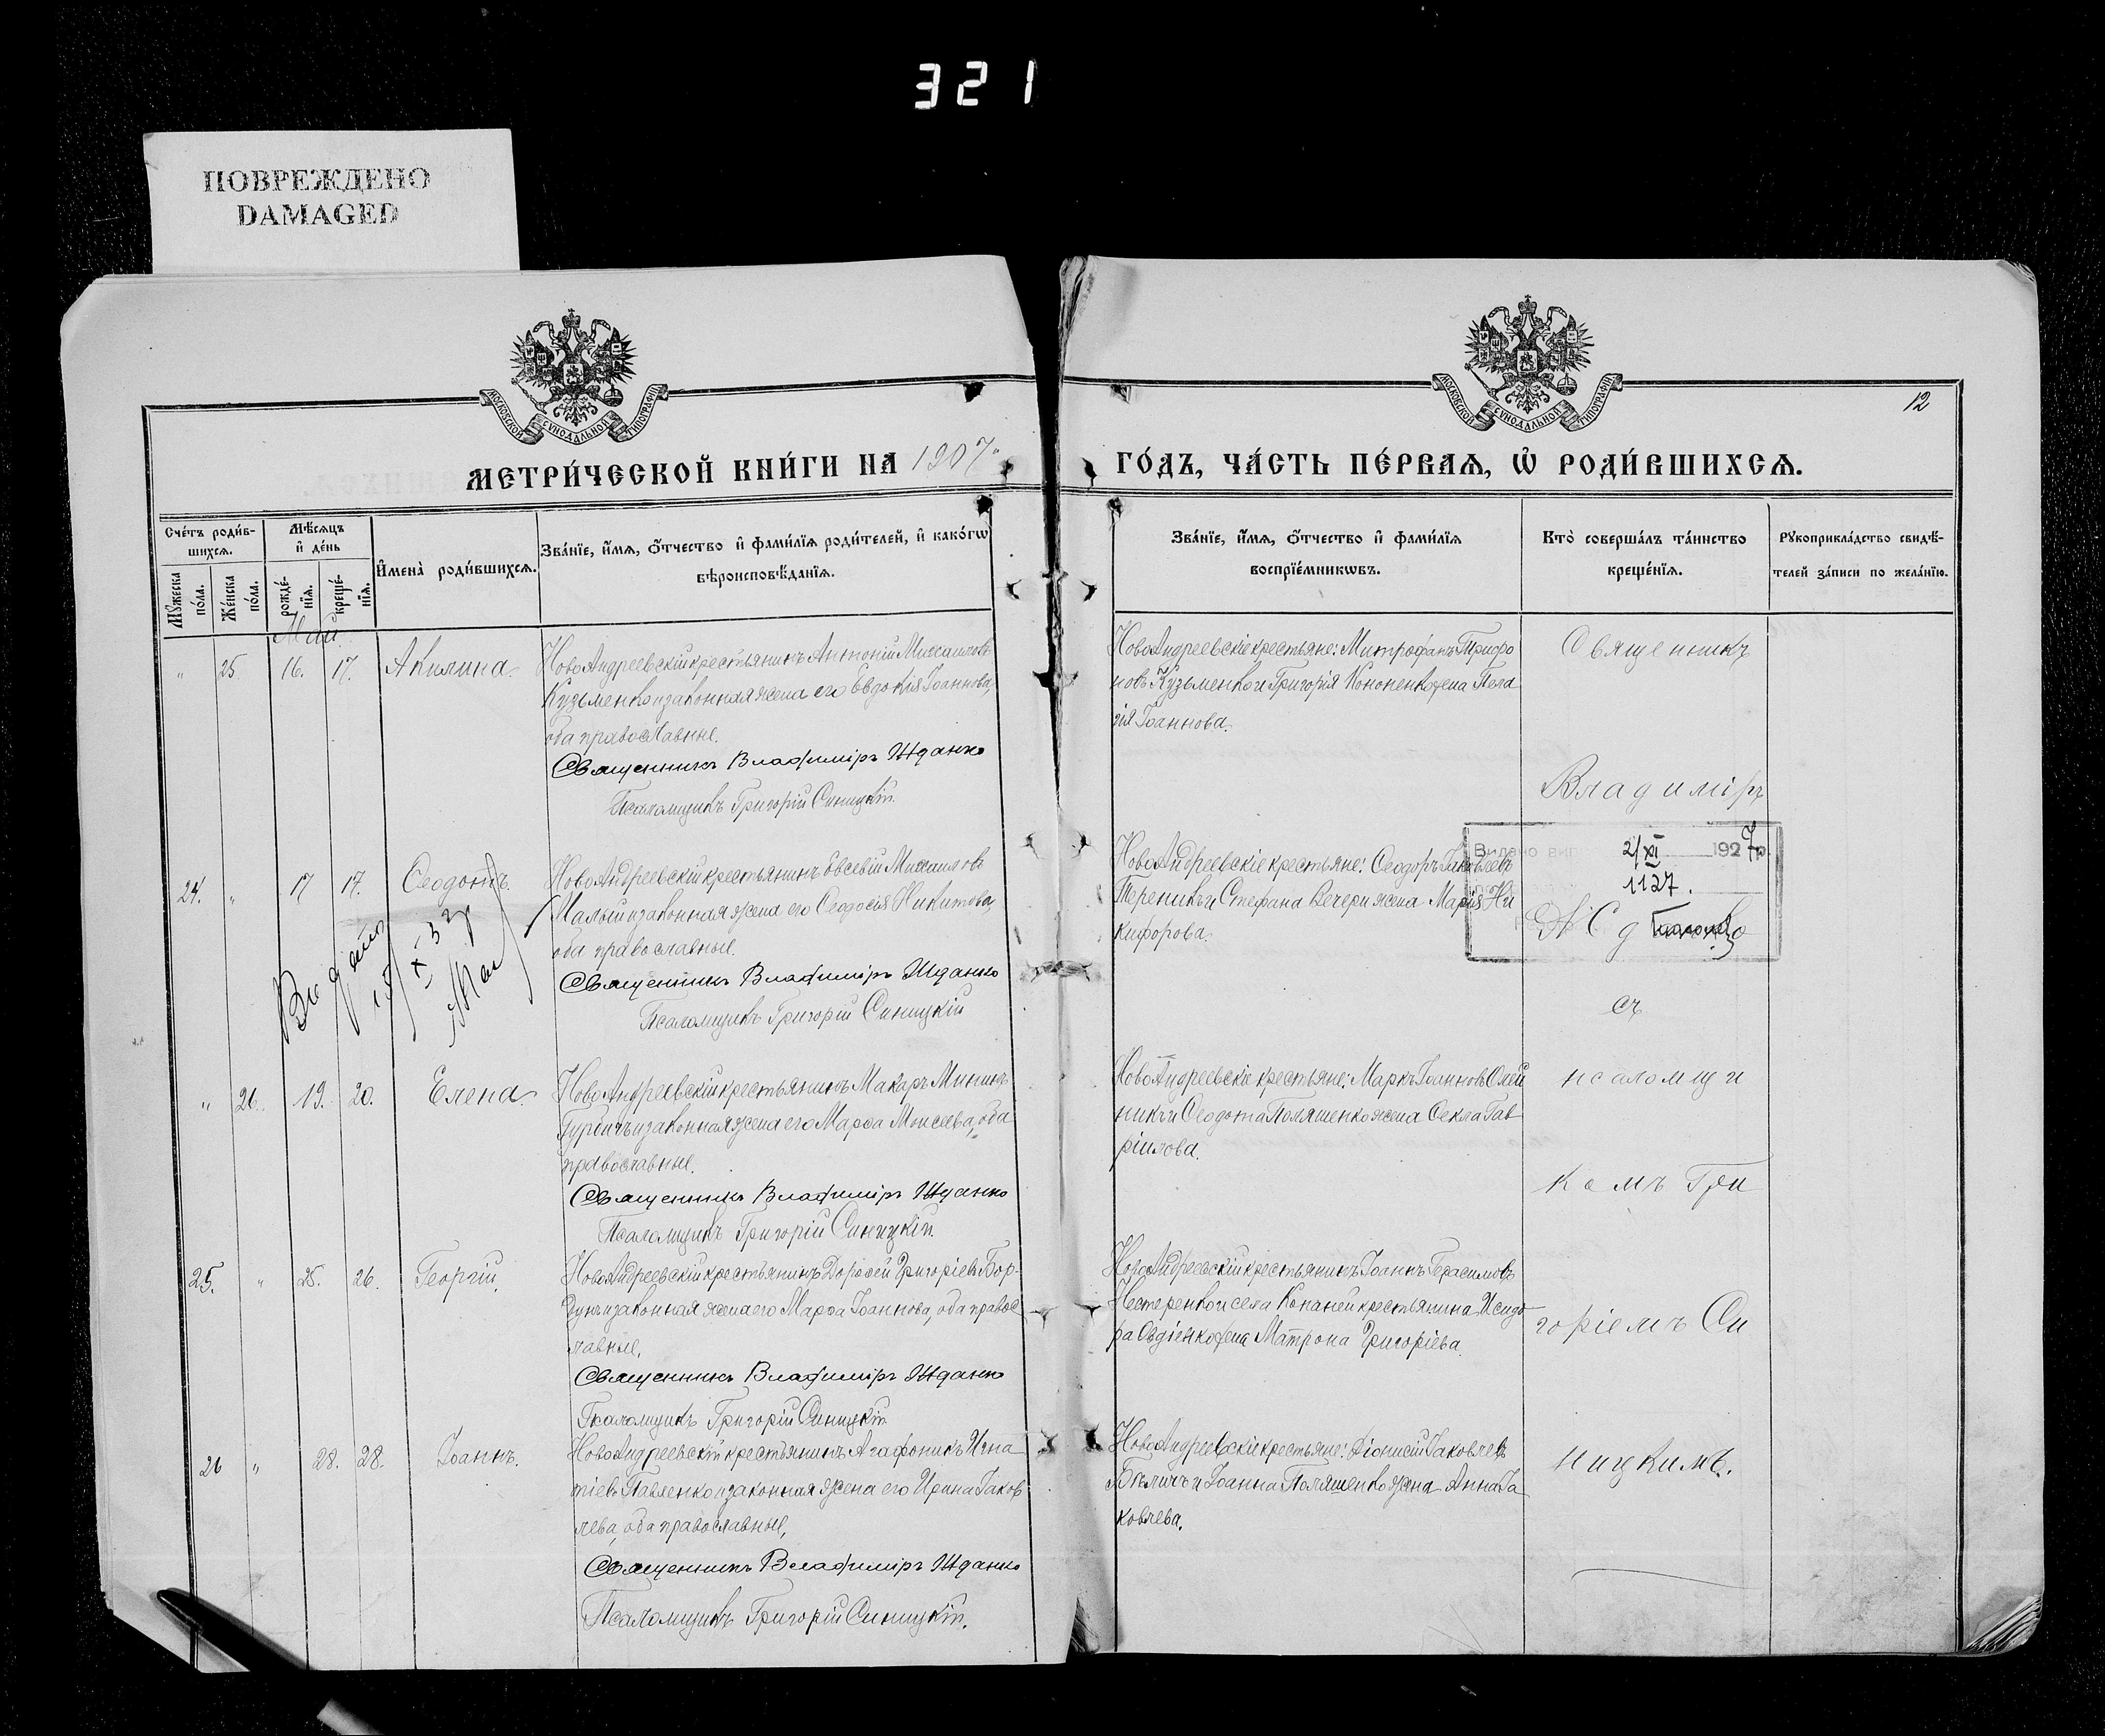 321
ПОВРЕЖДЕНО
DAMAGED
МОСКОВСКОЙ СѴНОДАЛЬНОЙ ТИПОГРАФІИ
МОСКОВСКОЙ СѴНОДАЛЬНОЙ ТИПОГРАФІИ
12
МЕТРИ́ЧЕСКОЙ КНИ́ГИ НА 1907
ГО́ДЪ, ЧА́СТЬ ПЕ́РВАѦ, Ѡ҆ РОДИ́ВШИХСѦ.
Сче́тъ роди́в-
шихсѧ.
Мѣ́сѧцъ
и҆ де́нь
Мꙋ́жеска
по́ла.
Же́нска
по́ла.
рожде́-
нїѧ.
креще́-
нїѧ.
И҆мена̀ роди́вшихсѧ.
Зва́нїе, и҆́мѧ, ѻ҆́тчество и҆ фами́лїѧ роди́телей, и҆ како́гѡ
вѣроисповѣ́данїѧ.
Зва́нїе, и҆́мѧ, ѻ҆́тчество и҆ фами́лїѧ
воспрїе́мникѡвъ.
Кто̀ соверша́лъ та́инство
креще́нїѧ.
Рꙋкоприкла́дство свидѣ́-
телей за́писи по жела́нїю.
Май
" 25. 16. 17. Акилина.
НовоАндреевскій крестьянинъ Антоній Михаиловъ
Кузьменко и законная жена его Евдокія Іоаннова,
оба православные.
Священникъ Владиміръ Жданко
Псаломщикъ Григорій Синицкій.
НовоАндреевскіе крестьяне: Митрофанъ Трифо
новъ Кузьменко и Григорія Кононенко жена Пела
гія Іоаннова.
Священникъ
Владиміръ
24. " 17 17. Ѳеодотъ.
НовоАндреевскій крестьянинъ Евсевій Михаиловъ
Малый и законная жена его Ѳеодосія Никитова,
оба православные.
Священникъ Владиміръ Жданко
Псаломщикъ Григорій Синицкій
НовоАндреевскіе крестьяне: Ѳеодоръ Іаковлевъ
Тереникъ и Стефана Вечери жена Марія Ни
кифорова.
2/XI 1927 р.
1127.
съ
" 26. 19. 20. Елена.
НовоАндреевскій крестьянинъ Макаръ Мининъ
Гуричъ и законная жена его Марѳа Моисеева, оба
православные.
Священникъ Владиміръ Жданко
Псаломщикъ Григорій Синицкій.
НовоАндреевскіе крестьяне: Маркъ Іоанновъ Олей
никъ и Ѳеодота Поляшенко жена Ѳекла Гав
ріилова.
псаломщи
комъ Гри
25. " 25. 26. Георгій.
НовоАндреевскій крестьянинъ Дороѳей Григоріевъ Бор-
дунъ и законная жена его Марѳа Іоаннова, оба правос
лавные.
Священникъ Владиміръ Жданко
Псаломщикъ Григорій Синицкій
НовоАндреевскій крестьянинъ Іоаннъ Герасимовъ
Нестеренко и села Копаней крестьянина Исидо
ра Овдіенко жена Матрона Григоріева.
горіемъ Си
26 " 28. 28. Іоаннъ.
НовоАндреевскій крестьянинъ Агафоникъ Игна
тіевъ Павленко и законная жена его Ирина Іаков
лева, оба православные,
Священникъ Владиміръ Жданко
Псаломщикъ Григорій Синицкій.
НовоАндреевскіе крестьяне: Діонисій Іаковлевъ
Бѣличъ и Іоанна Поляшенко жена Анна Іа
ковлева.
ницкимъ.